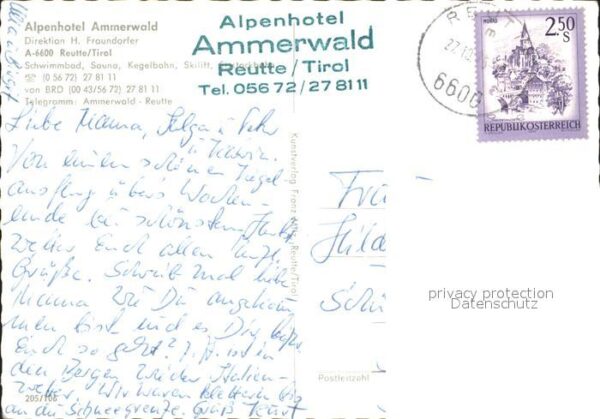 Alpenhotel Ammerwald
Direktion H. Fraundorfer
A-6600 Reutte/Tirol
Schwimmbad, Sauna, Kegelbahn, Skilift,
☎ (0 56 72) 27 81 11
von BRD (00 43/56 72) 27 81 11
Telegramm: Ammerwald - Reutte
Alpenhotel
Ammerwald
Reutte / Tirol
Tel. 056 72 / 27 81 11
REUTTE
6600
MURAU
2.50 S
REPUBLIK ÖSTERREICH
Liebe Mamma, Helga u
u
Von einem schönen Kegel-
ausflug übers Wochen-
ende bei schönstem
wetter Euch allen
Grüße. Schreib mal liebe
Mamma wie Du angekom
men bist und es Dir
Euch so geht? ist in
den Bergen wieder Italien-
wetter. Wir waren
an die Schneegrenze. Gruß
Kunstverlag Franz Reutte/Tirol
Frau
Hilde
privacy protection
Datenschutz
Postleitzahl
205/106